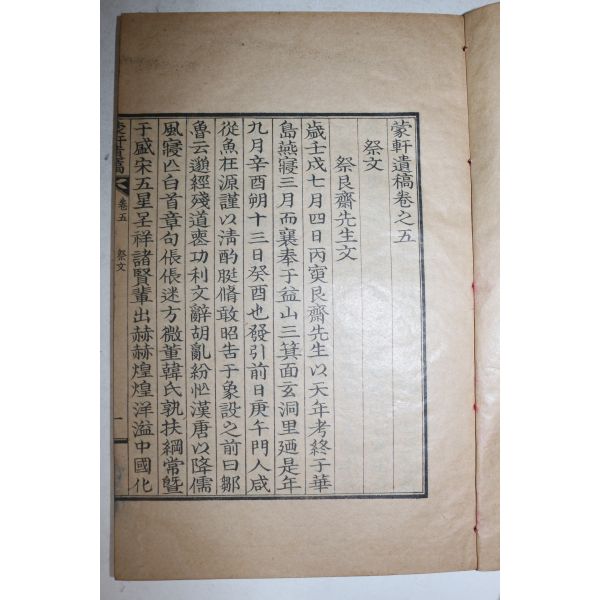 蒙軒遺稿卷之五
祭文
祭艮齋先生文
歲壬戌七月四日丙寅艮齋先生以天年考終于華
島燕寢三月而襄奉于益山三箕面玄洞里廼是年
九月辛酉朔十三日癸酉也發引前日庚午門人咸
從魚在源謹以淸酌脡脩敢昭告于象設之前曰鄒
魯云邈經殘道喪功利文辭胡亂紛怂漢唐以降儒
風寢亾白首章句倀倀迷方微董韓氏孰扶綱常曁
于盛宋五星呈祥諸賢輩出赫赫煌煌洋溢中國化
蒙軒遺稿
卷五
祭文
一